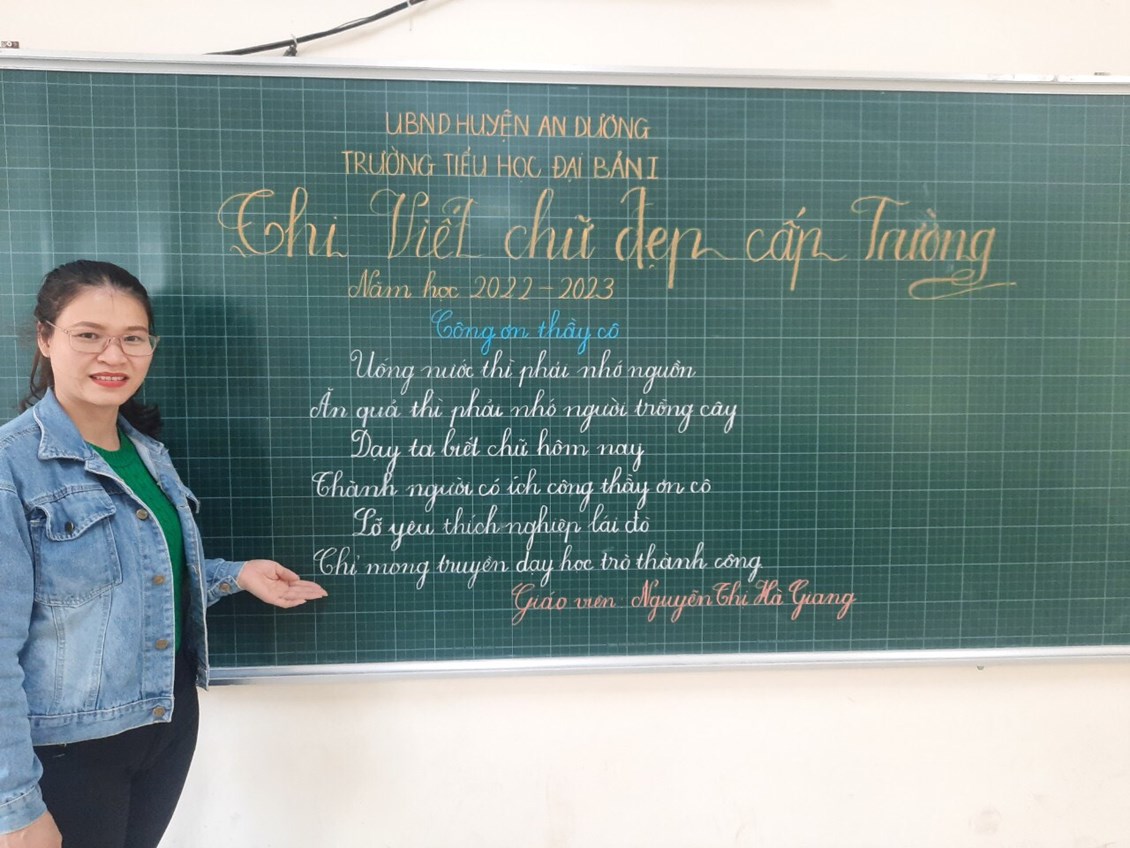 UBND HUYỆN AN DƯƠNG
TRƯỜNG TIỂU HỌC ĐẠI BẢN I
Thi Viết chữ đẹp cấp Trường
Năm học 2022 - 2023
Công ơn thầy cô
Uống nước thì phải nhớ nguồn
Ăn quả thì phải nhớ người trồng cây
Dạy ta biết chữ hôm nay
Thành người có ích công thầy ơn cô
Lỡ yêu thích nghiệp lái đò
Chỉ mong truyền dạy học trò thành công
Giáo viên: Nguyễn Thị Hà Giang